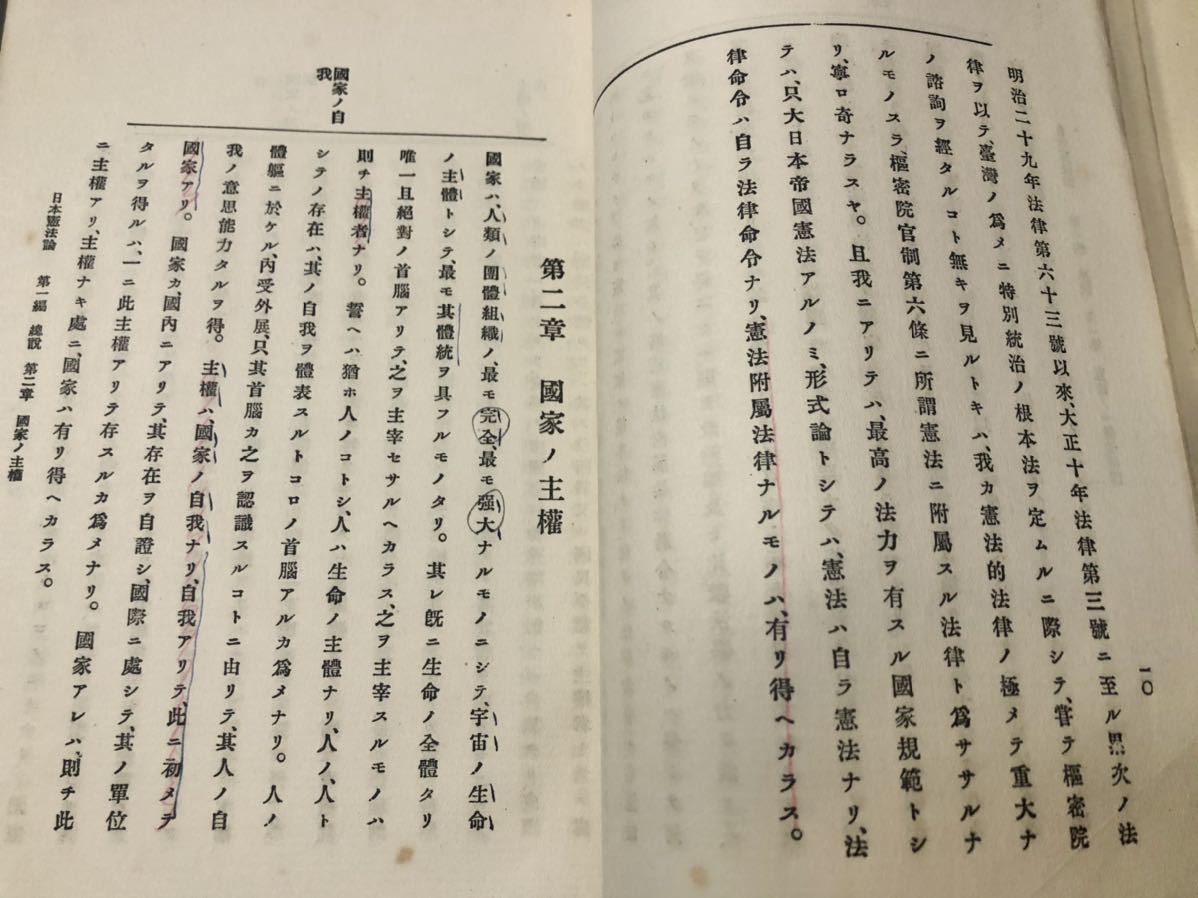 一〇
明治二十九年法律第六十三號以來、大正十年法律第三號ニ至ル累次ノ法
律ヲ以テ、臺灣ノ爲メニ特別統治ノ根本法ヲ定ムルニ際シテ、甞テ樞密院
ノ諮詢ヲ經タルコト無キヲ見ルトキハ、我カ憲法的法律ノ極メテ重大ナ
ルモノスラ、樞密院官制第六條ニ所謂憲法ニ附屬スル法律ト爲ササルナ
リ、寧ロ奇ナラスヤ。且我ニアリテハ、最高ノ法力ヲ有スル國家規範トシ
テハ、只大日本帝國憲法アルノミ、形式論トシテハ、憲法ハ自ラ憲法ナリ、法
律命令ハ自ラ法律命令ナリ、憲法附屬法律ナルモノハ、有リ得ヘカラス。
第二章　國家ノ主權
國家ノ自
我
國家ハ、人類ノ團體組織ノ、最モ完全最モ强大ナルモノニシテ、宇宙ノ生命
ノ主體トシテ、最モ其體統ヲ具フルモノタリ。其レ旣ニ生命ノ全體タリ
唯一且絕對ノ首腦アリテ、之ヲ主宰セサルヘカラス、之ヲ主宰スルモノハ
則チ主權者ナリ。譬ヘハ猶ホ人ノコトシ、人ハ生命ノ主體ナリ、人ノ、人ト
シテノ存在ハ、其ノ自我ヲ體表スルトコロノ首腦アルカ爲メナリ。人ノ
體軀ニ於ケル、內受外展、只其首腦カ之ヲ認識スルコトニ由リテ、其人ノ自
我ノ意思能力タルヲ得。主權ハ、國家ノ自我ナリ、自我アリテ、此ニ初メテ
國家アリ。國家カ國內ニアリテ、其存在ヲ自證シ、國際ニ處シテ、其ノ單位
タルヲ得ルハ、一ニ此主權アリテ存スルカ爲メナリ。國家アレハ、則チ此
ニ主權アリ、主權ナキ處ニ、國家ハ有リ得ヘカラス。
日本憲法論　第一編　總說　第二章　國家ノ主權